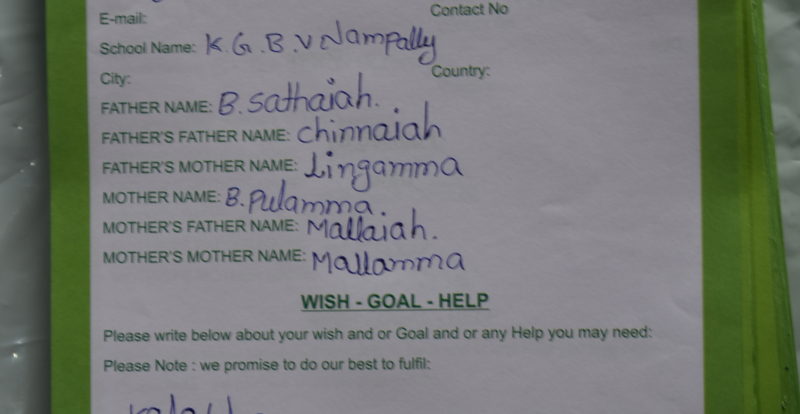 E-mail: Contact No
School Name: K.G.B.V Nampally
City: Country:
FATHER NAME: B. Sathaiah.
FATHER'S FATHER NAME: Chinnaiah
FATHER'S MOTHER NAME: Lingamma
MOTHER NAME: B. Pulamma.
MOTHER'S FATHER NAME: Mallaiah.
MOTHER'S MOTHER NAME: Mallamma
WISH - GOAL - HELP
Please write below about your wish and or Goal and or any Help you may need:
Please Note : we promise to do our best to fulfil: